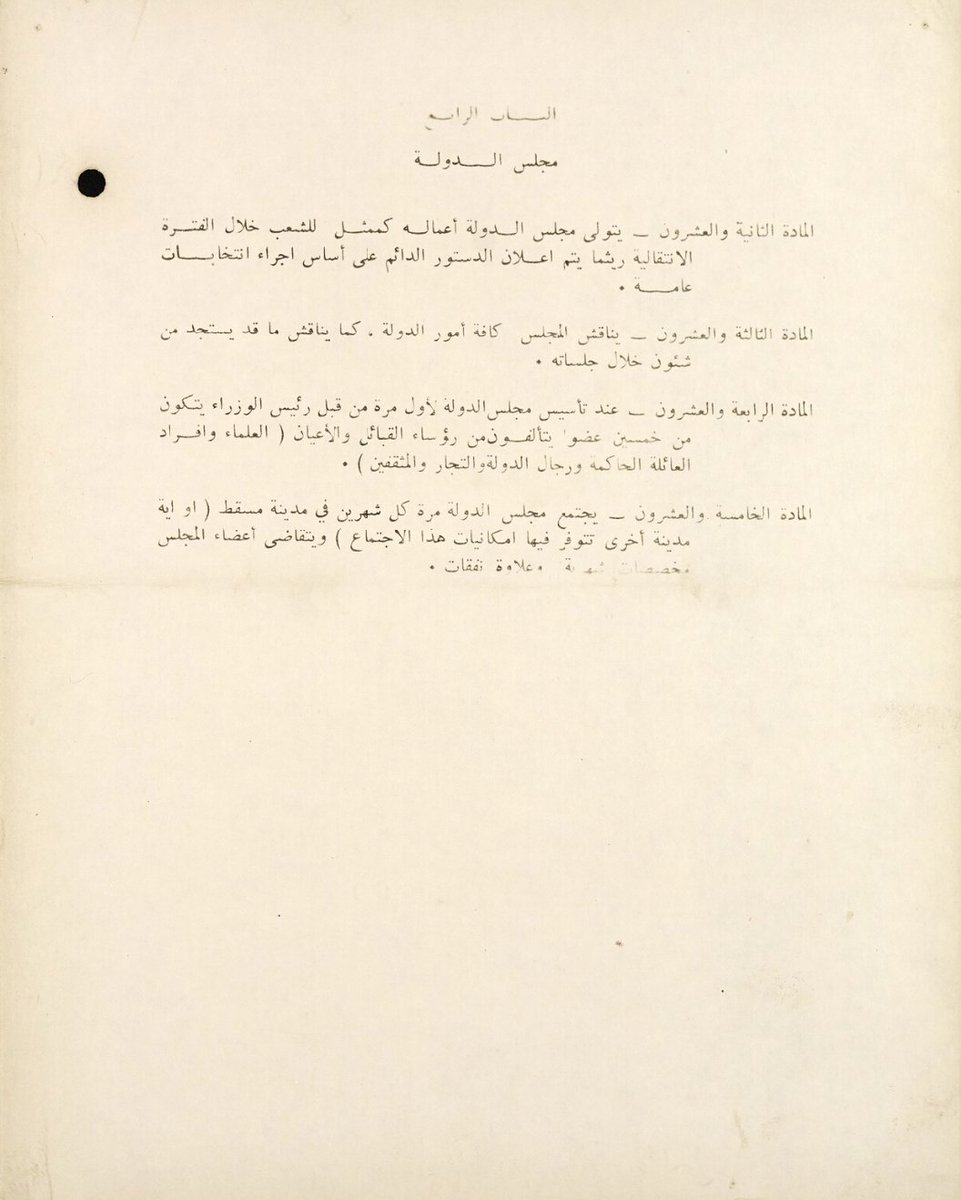 الباب الرابع
مجلس الدولة
المادة الثانية والعشرون – يتولى مجلس الدولة أعماله كممثل للشعب خلال الفترة
الانتقالية ريثما يتم اعلان الدستور الدائم على أساس اجراء انتخابات
عامة .
المادة الثالثة والعشرون – يناقش المجلس كافة أمور الدولة . كما يناقش ما قد يستجد من
شئون خلال جلساته .
المادة الرابعة والعشرون – عند تأسيس مجلس الدولة لأول مرة من قبل رئيس الوزراء يتكون
من خمسين عضوا يتألفون من رؤساء القبائل والأعيان ( العلماء وافراد
العائلة الحاكمة ورجال الدولة والتجار والمثقفين ) .
المادة الخامسة والعشرون – يجتمع مجلس الدولة مرة كل شهرين في مدينة مسقط ( او اية
مدينة أخرى تتوفر فيها امكانيات هذا الاجتماع ) ويتقاضى أعضاء المجلس
مخصصات شهرية وعلاوة نفقات .